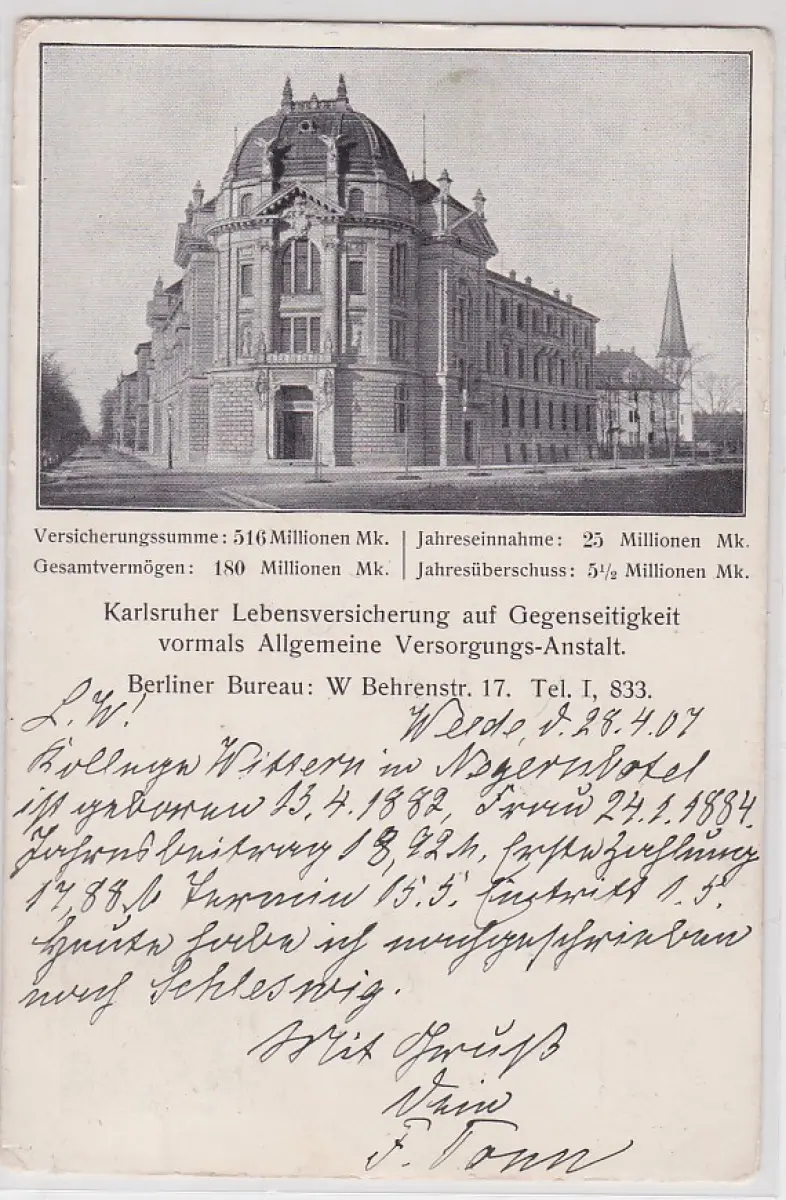 Versicherungssumme: 516 Millionen Mk. | Jahreseinnahme: 25 Millionen Mk.
Gesamtvermögen: 180 Millionen Mk. | Jahresüberschuss: 5½ Millionen Mk.
Karlsruher Lebensversicherung auf Gegenseitigkeit
vormals Allgemeine Versorgungs-Anstalt.
Berliner Bureau: W Behrenstr. 17. Tel. I, 833.
L. W! d. 28.4.07
Kollege Wittern in
ist geboren 13.4.1882, Frau 24.1.1884.
Jahresbeitrag 18,92 M, Erste Zahlung
17,88 M Termin 15.5. Eintritt 1.5.
Heute habe ich nachgeschrieben
nach Schleswig.
Mit Gruß
Dein
F. Tonn